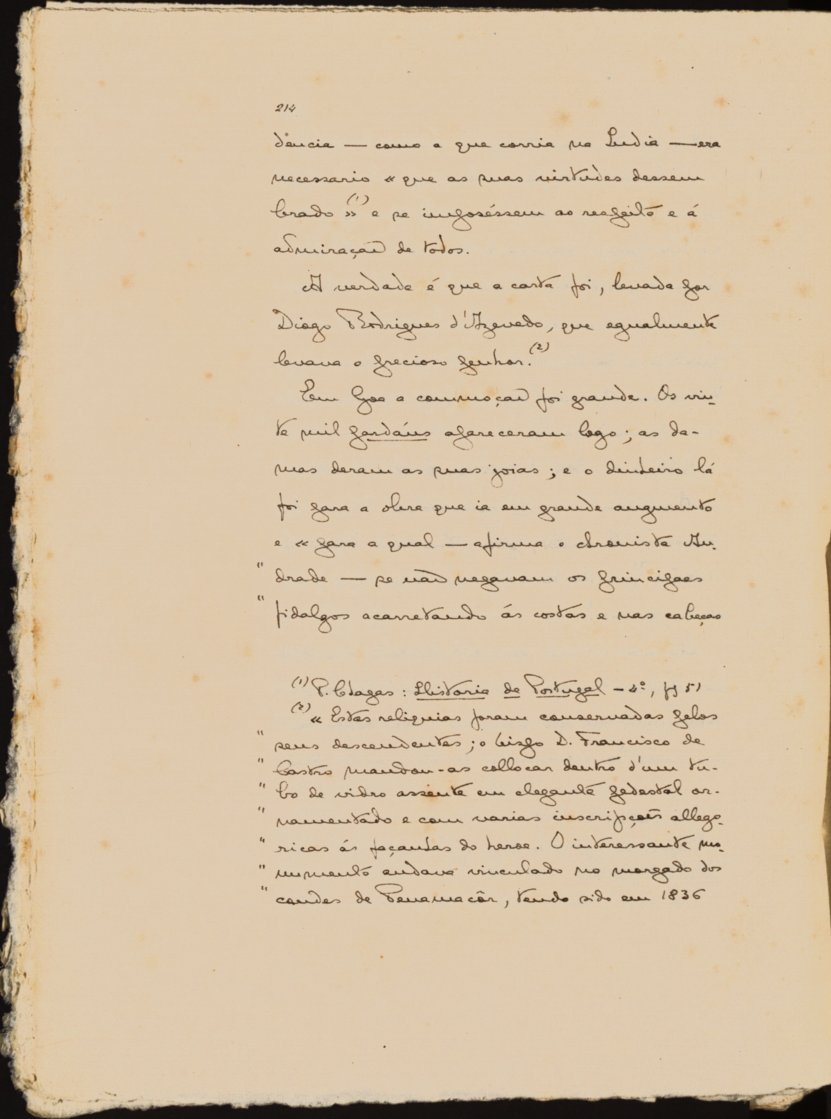 214
dência — como a que corria na India — era
necessario « que as suas virtudes dessem
brado » (1) e se imposéssem ao respeito e á
admiração de todos.
A verdade é que a carta foi, levada por
Diogo Rodrigues d'Azevedo, que egualmente
levava o precioso penhor. (2)
Em Goa a commoção foi grande. Os vin-
te mil pardáus apareceram logo; as da-
mas deram as suas joias; e o dinheiro lá
foi para a obra que ia em grande augmento
e « para a qual — afirma o chronista An-
" drade — se não negavam os principaes
" fidalgos acarretando ás costas e nas cabeças
(1) P. Chagas: Historia de Portugal — 4º, pg 51
(2) « Estas reliquias foram conservadas pelos
" seus descendentes; o bispo D. Francisco de
" Castro mandou-as collocar dentro d'um tu-
" bo de vidro assente em elegante pedestal or-
" namentado e com varias inscripções allego-
" ricas ás façanhas do heroe. O interessante mo-
" numento andava vinculado no morgado dos
" condes de Penamacôr, tendo sido em 1836